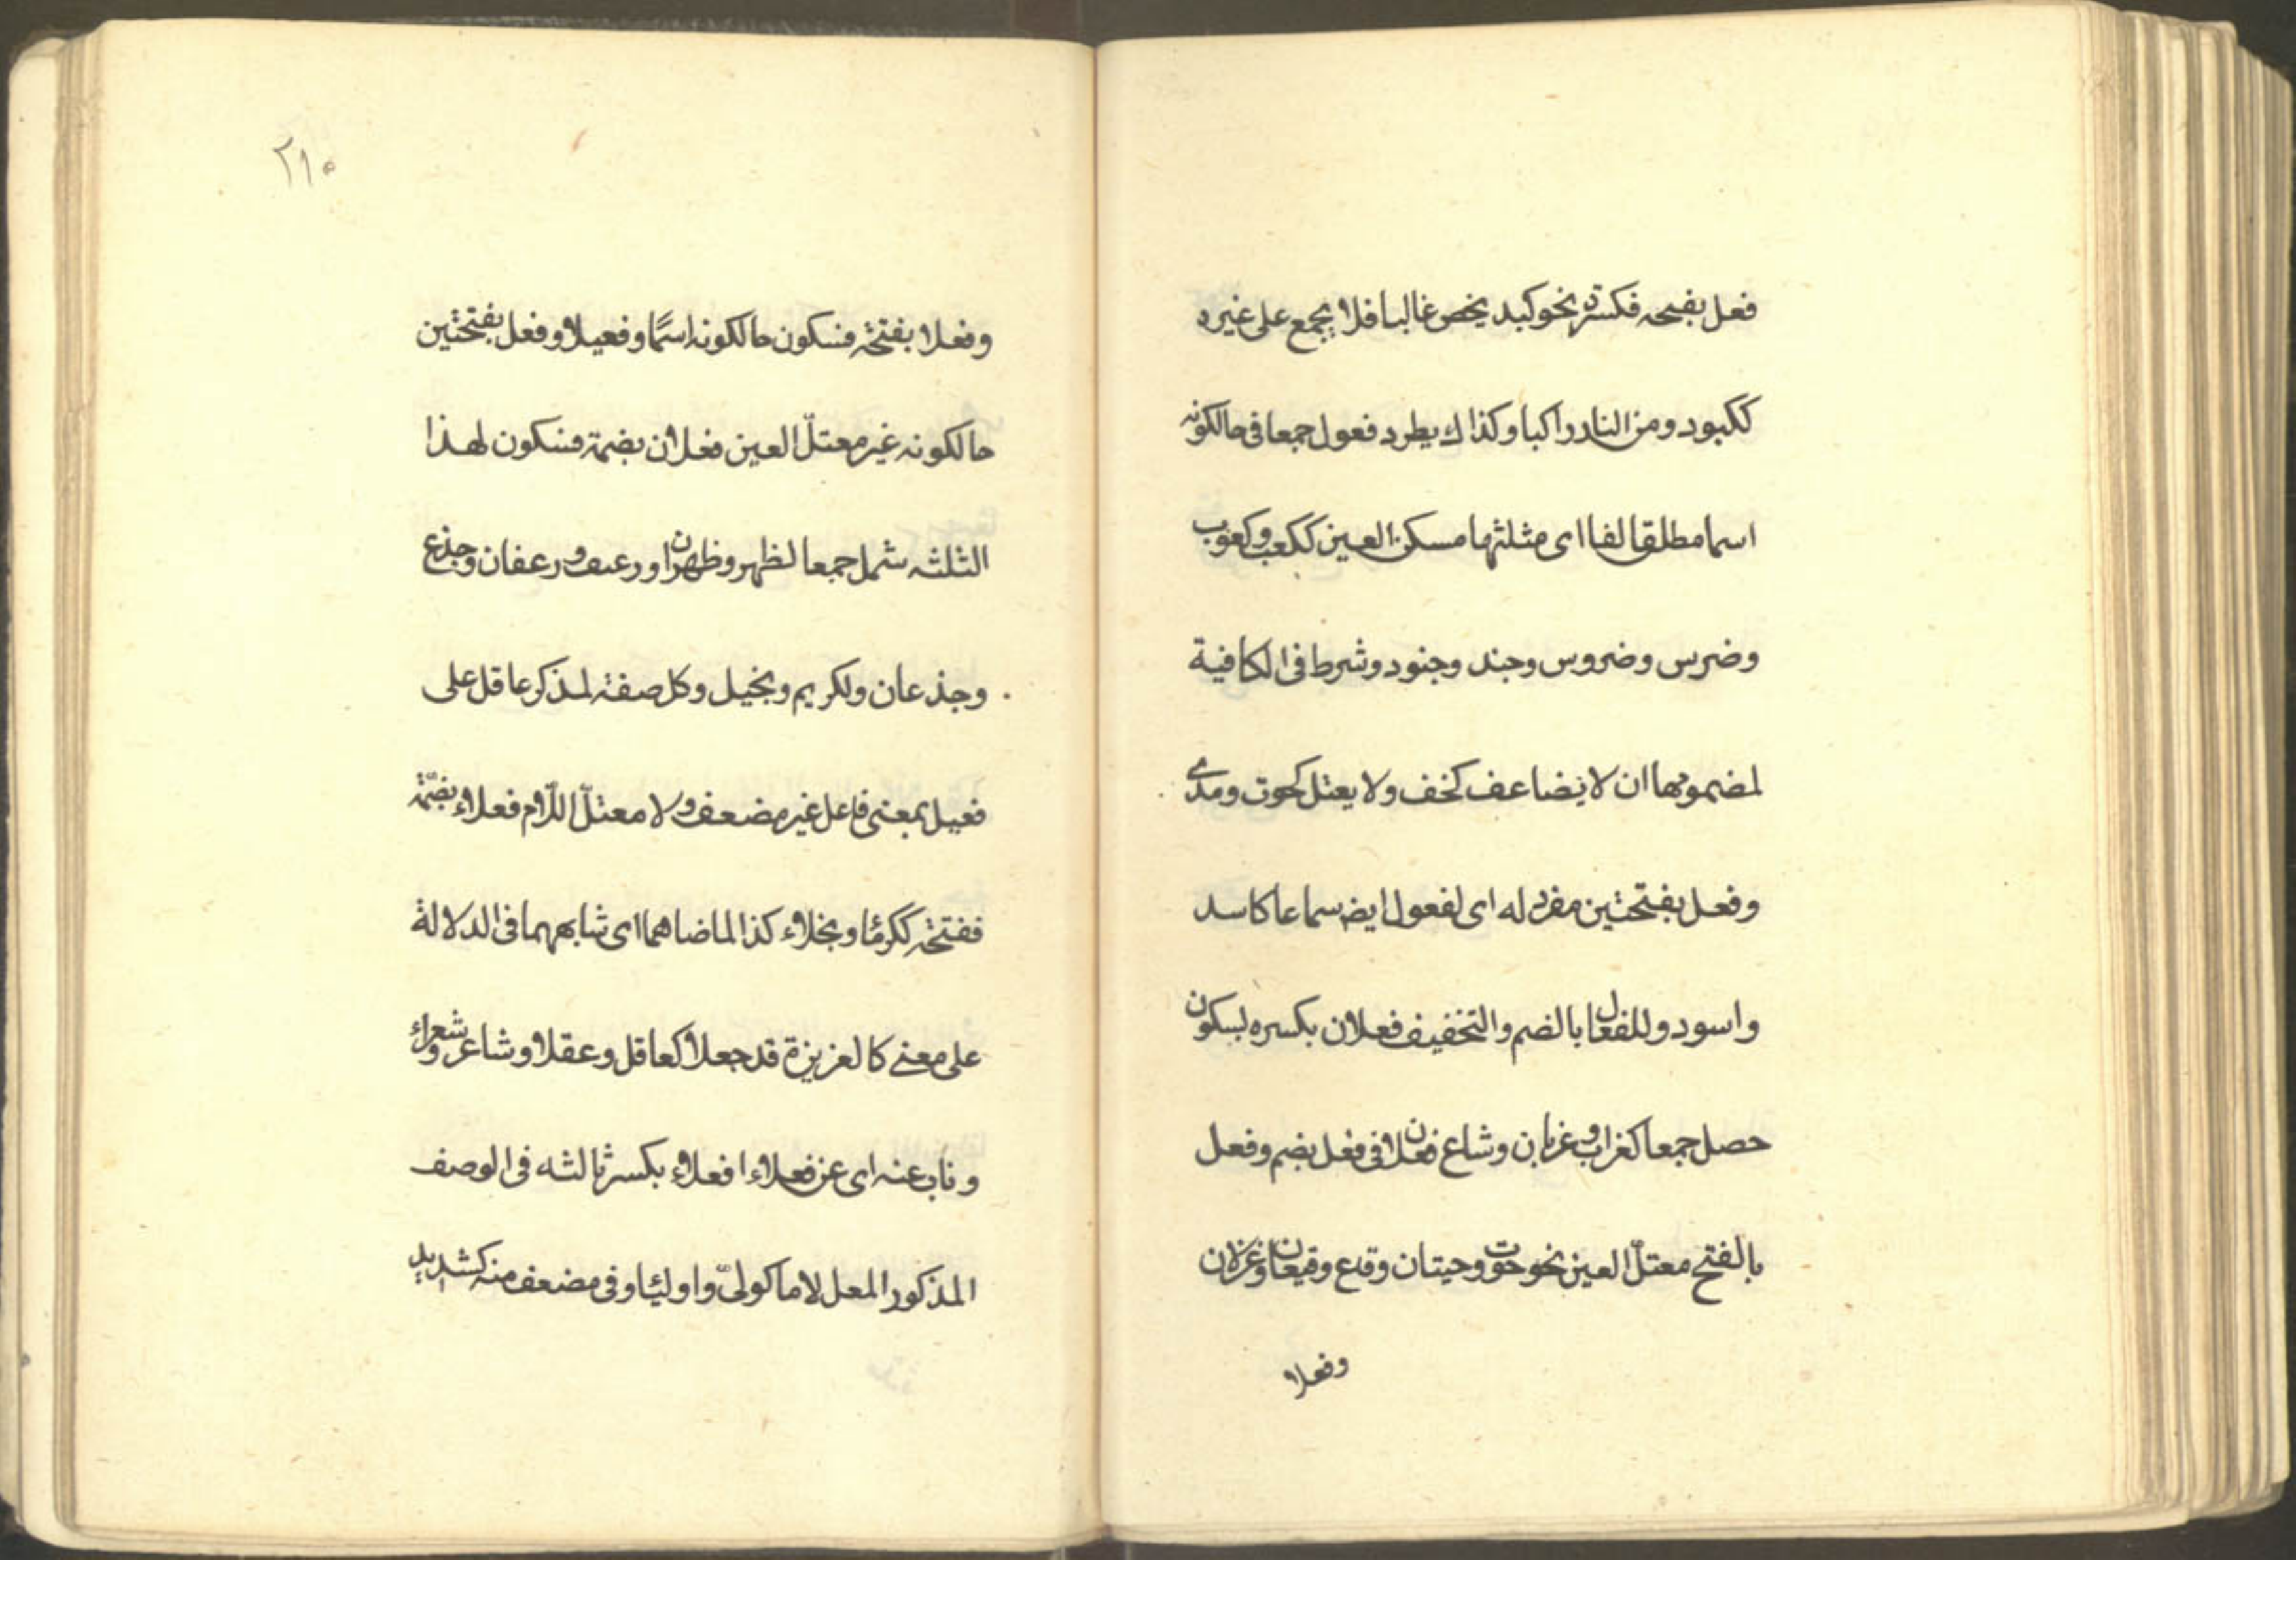 فعل بفتحه فكسرة نحو كبد يخص غالبا فلا يجمع على غيره
ككبود ومن النادر اكبا وكذاك يطرد فعول جمعا فى حالكونه
اسما مطلقا لفا اى مثلثها مسكن العين ككعب وكعوب
وضرس وضروس وجند وجنود وشرط فى الكافية
لمضمومها ان لا يضاعف كخف ولا يعتل كحوت ومدى
وفعل بفتحتين مفرد له اى لفعول ايضا سماعا كاسد
واسود وللفعال بالضم والتخفيف فعلان بكسره لسكون
حصل جمعا كغراب وغربان وشاع فعلان فى فعل بضم وفعل
بالفتح معتلّ العين نحو حوت وحيتان وقاع وقيعان وغزلان
وفعلا
٢١٠
وفعلا بفتحة فسكون حالكونه اسمًا وفعيلا وفعل بفتحتين
حالكونه غير معتلّ العين فعلان بضمة فسكون لهذا
الثلثه شمل جمعا لظهر وظهران ورعيف ورعفان وجذع
وجذعان ولكريم وبخيل وكل صفة لمذكر عاقل على
فعيل بمعنى فاعل غير مضعف ولا معتلّ اللّام فعلاء بضمّة
ففتحة ككرمًا وبخلاء كذا لما ضاهاهما اى شابههما فى الدلالة
على معنى كالغزيزة قد جعلا كعاقل وعقلا وشاعر وشعراء
وناب عنه اى عن فعلاء افعلاء بكسر ثالثه فى الوصف
المذكور المعل لاما كولىّ واوليًا وفى مضعف منه كشديد